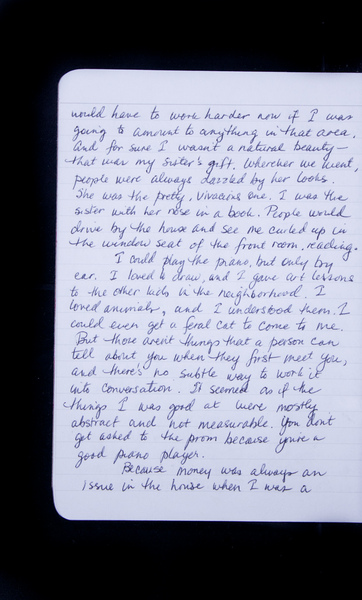 would have to work harder now if I was
going to amount to anything in that area.
And for sure I wasn't a natural beauty—
that was my sister's gift. Wherever we went,
people were always dazzled by her looks.
She was the pretty, vivacious one. I was the
sister with her nose in a book. People would
drive by the house and see me curled up in
the window seat of the front room, reading.
I could play the piano, but only by
ear. I loved to draw, and I gave art lessons
to the other kids in the neighborhood. I
loved animals, and I understood them. I
could even get a feral cat to come to me.
But those aren't things that a person can
tell about you when they first meet you,
and there's no subtle way to work it
into conversation. It seemed as if the
things I was good at were mostly
abstract and not measurable. You don't
get asked to the prom because you're a
good piano player.
Because money was always an
issue in the house when I was a